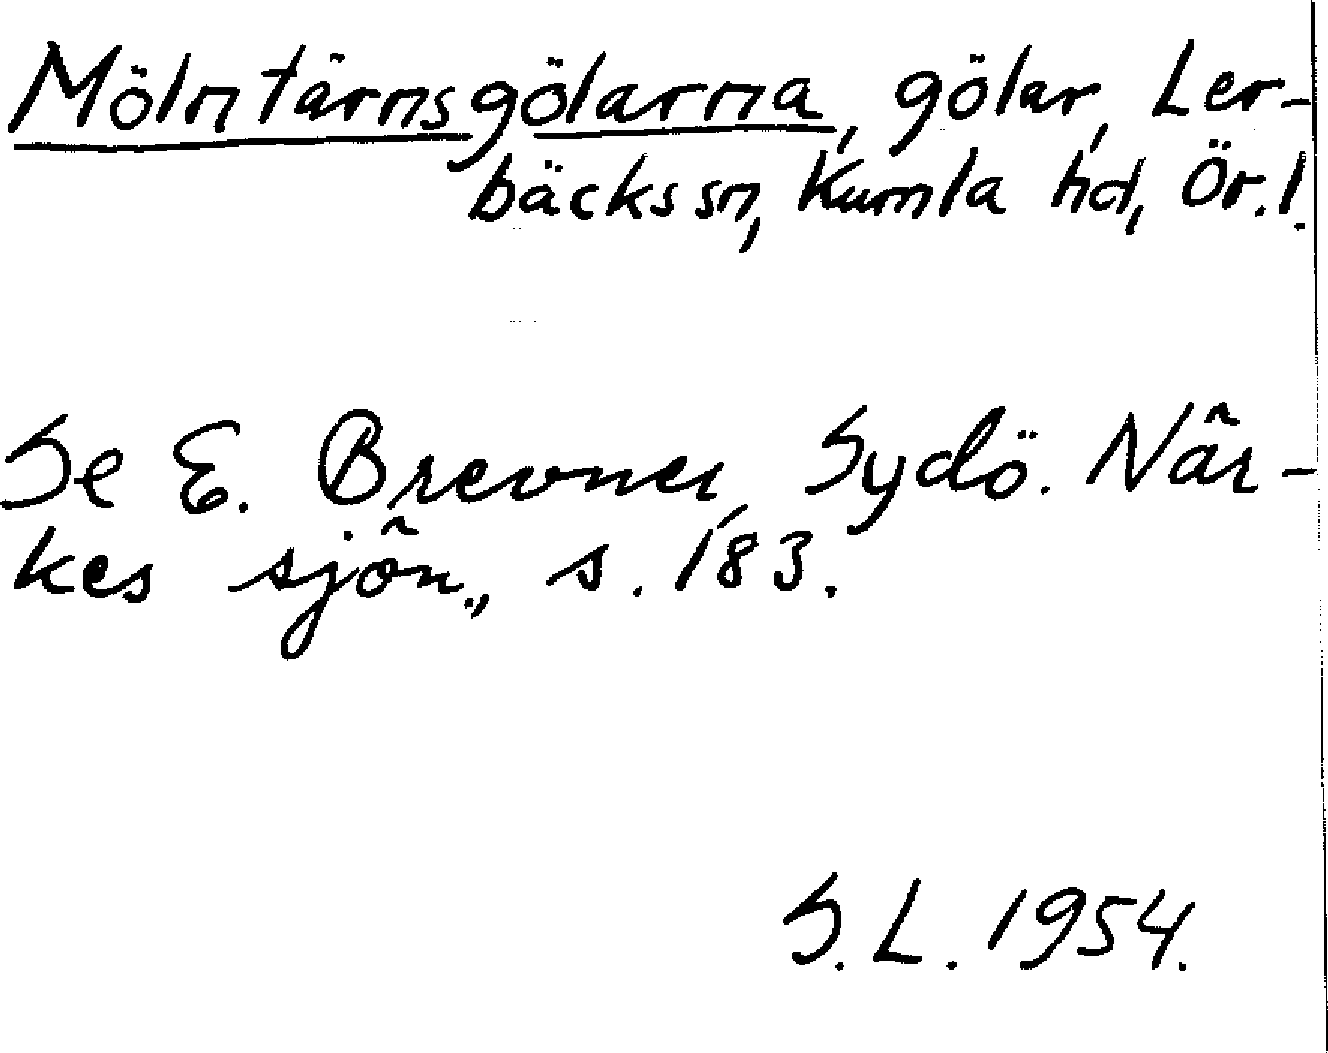 Mölntärnsgölarna, gölar, Ler-
bäcks sn, Kumla hd, Ör. l.
Se E. Brevner, Sydö. När-
kes sjön., s. 183.
S. L. 1954.